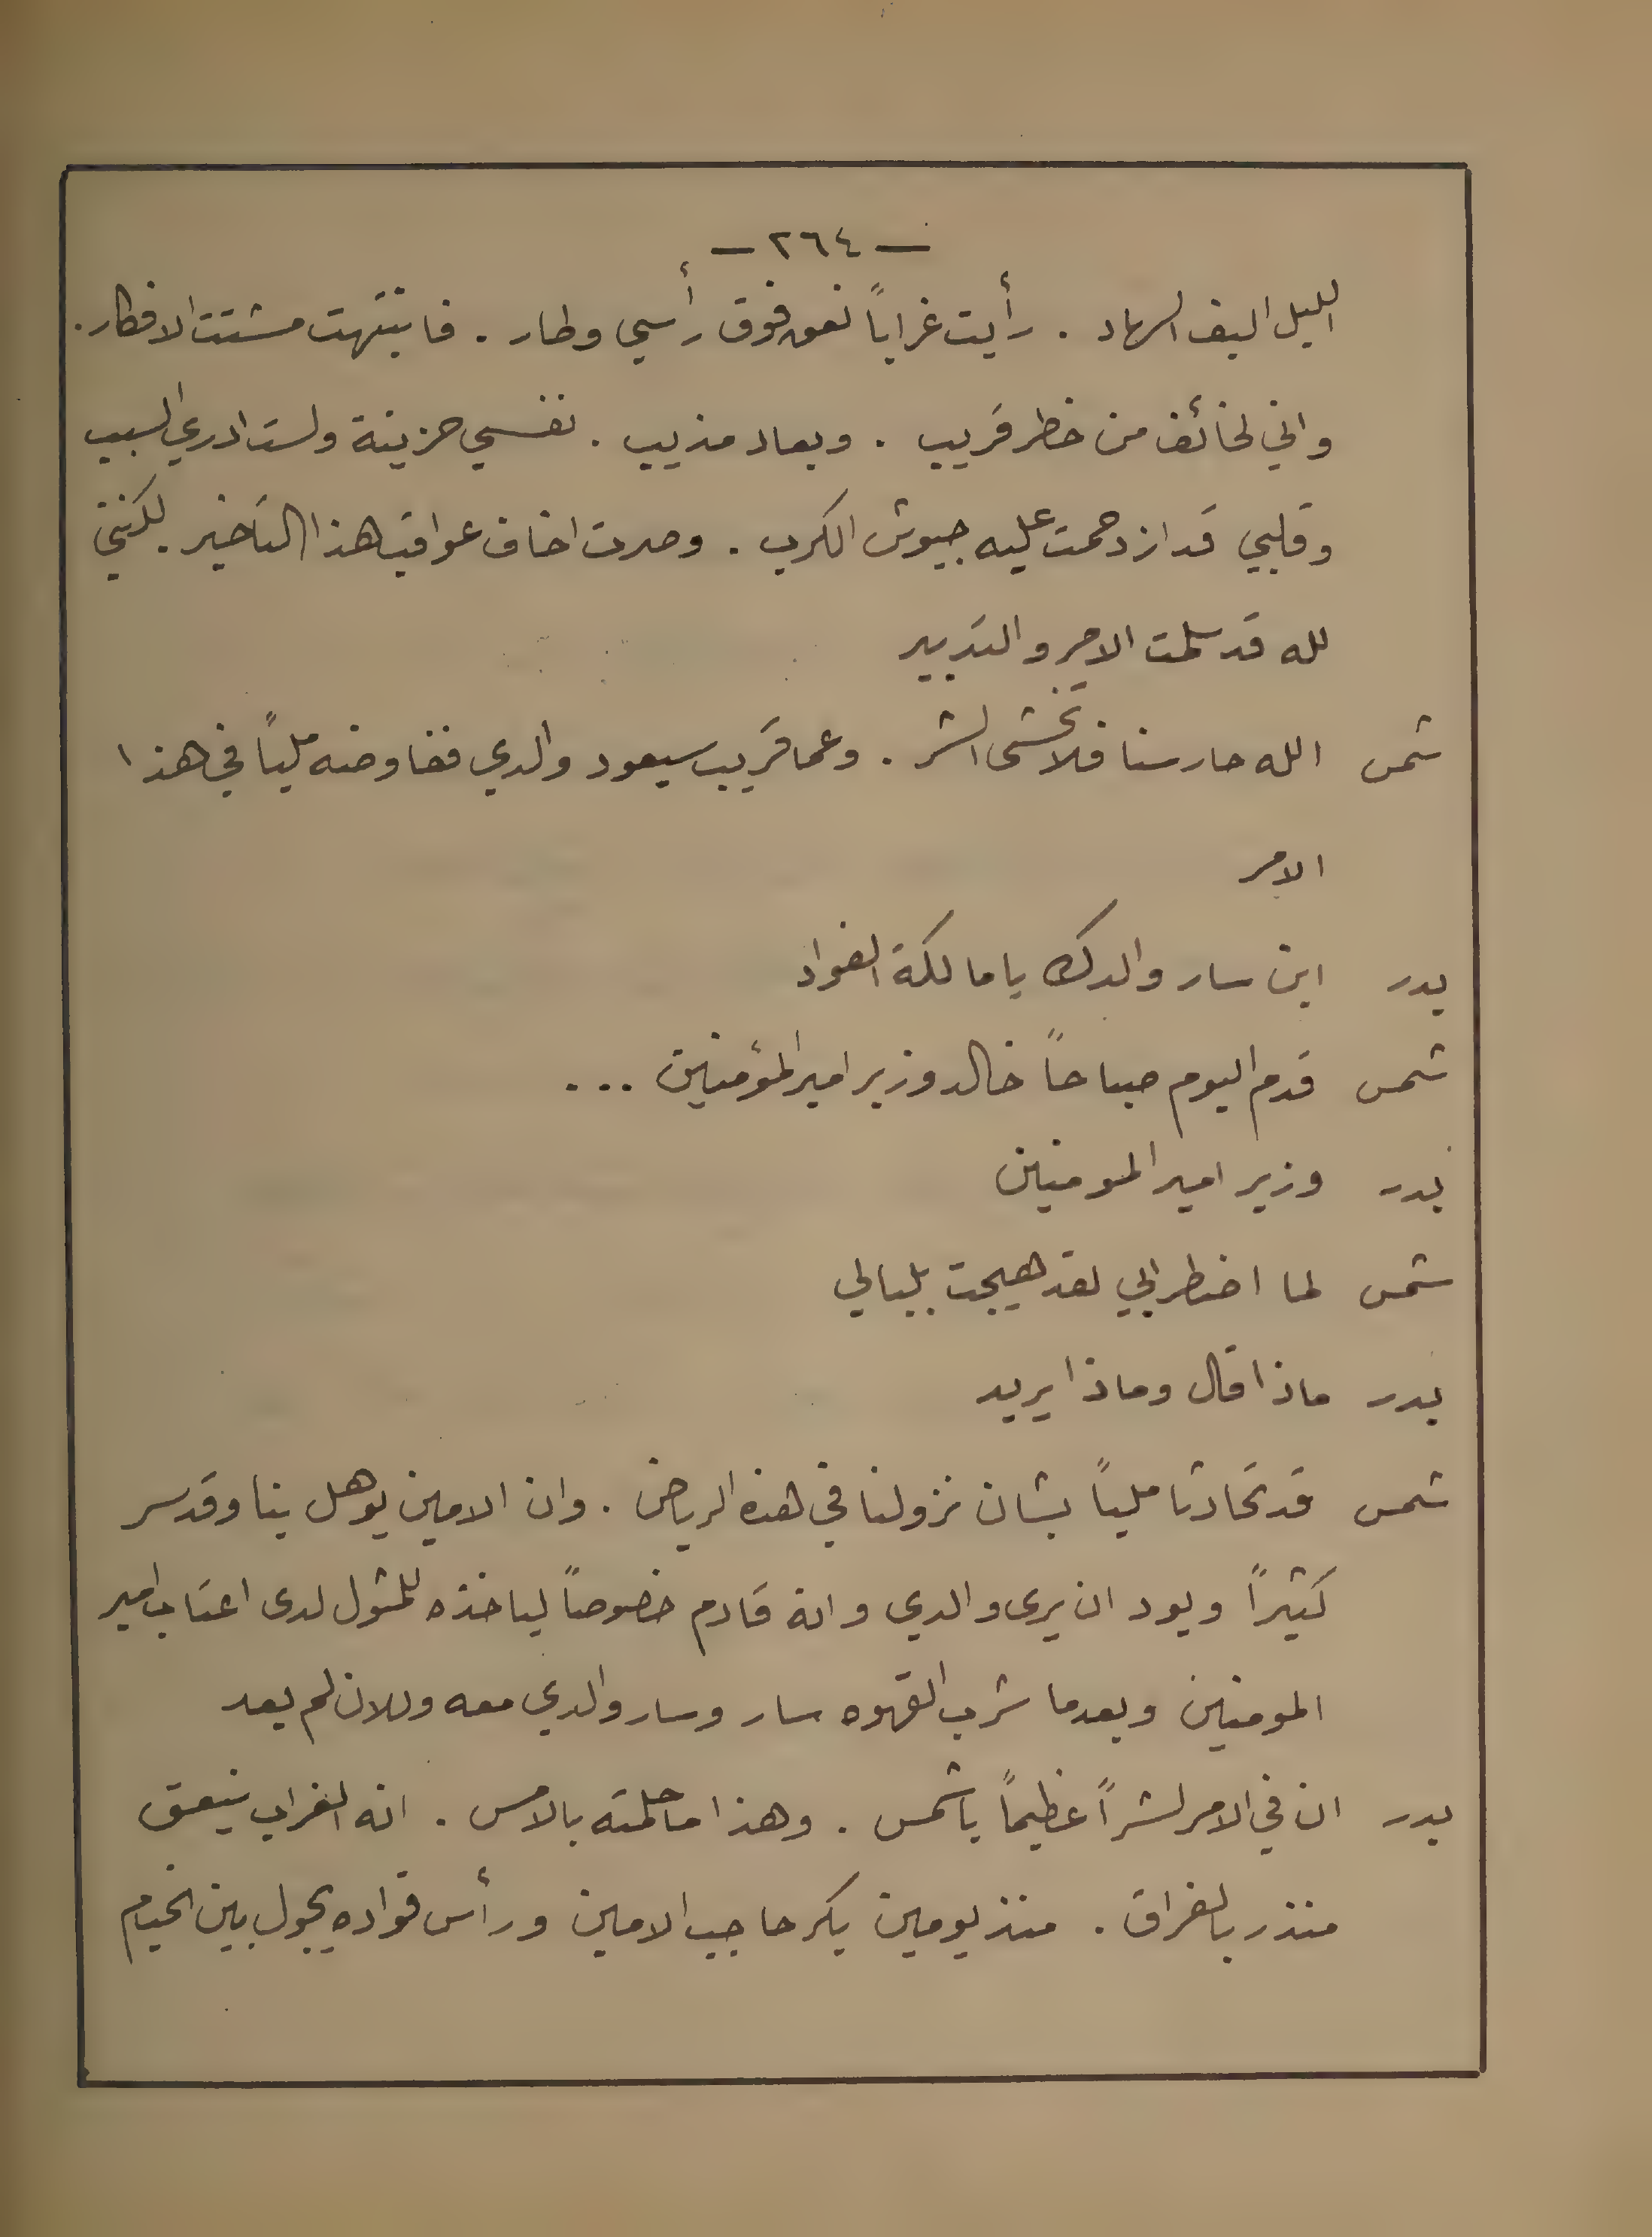 — ٢٦٤ —
الليل اليف السهاد . رأيت غراباً نعق فوق رأسي وطار . فانتبهت مشتت الافكار .
واني لخائف من خطر قريب . وبعاد مذيب . نفسي حزينة ولست ادري السبب
وقلبي قد ازدحمت عليه جيوش الكرب . وصرت اخاف عواقب هذا التاخير . لكنني
لله قد سلمت الامر والتدبير
شمس الله حارسنا فلا تخشى الشر . وعما قريب سيعود والدي ففاوضه ملياً في هذا
الامر
بدر اين سار والدك يا مالكة الفواد
شمس قدم اليوم صباحاً خالد وزير امير المؤمنين ...
بدر وزير امير المومنين
شمس لما اضطرابي لقد هيجت بلبالي
بدر ماذا قال وماذا يريد
شمس قد تحادثا ملياً بشان نزولنا في هذه الرياض . وان الامين يوهل بنا وقد سر
كثيراً ويود ان يرى والدي وانه قادم خصوصاً لياخذه للمثول لدى اعتاب امير
المومنين وبعدما شرب القهوه سار وسار والدي معه وللان لم يعد
بدر ان في الامر لشراً عظيماً يا شمس . وهذا ما حلمته بالامس . انه الغراب ينعق
منذر بالفراق . منذ يومين بكر حاجب الامين ورأس قواده يجول بين الخيام